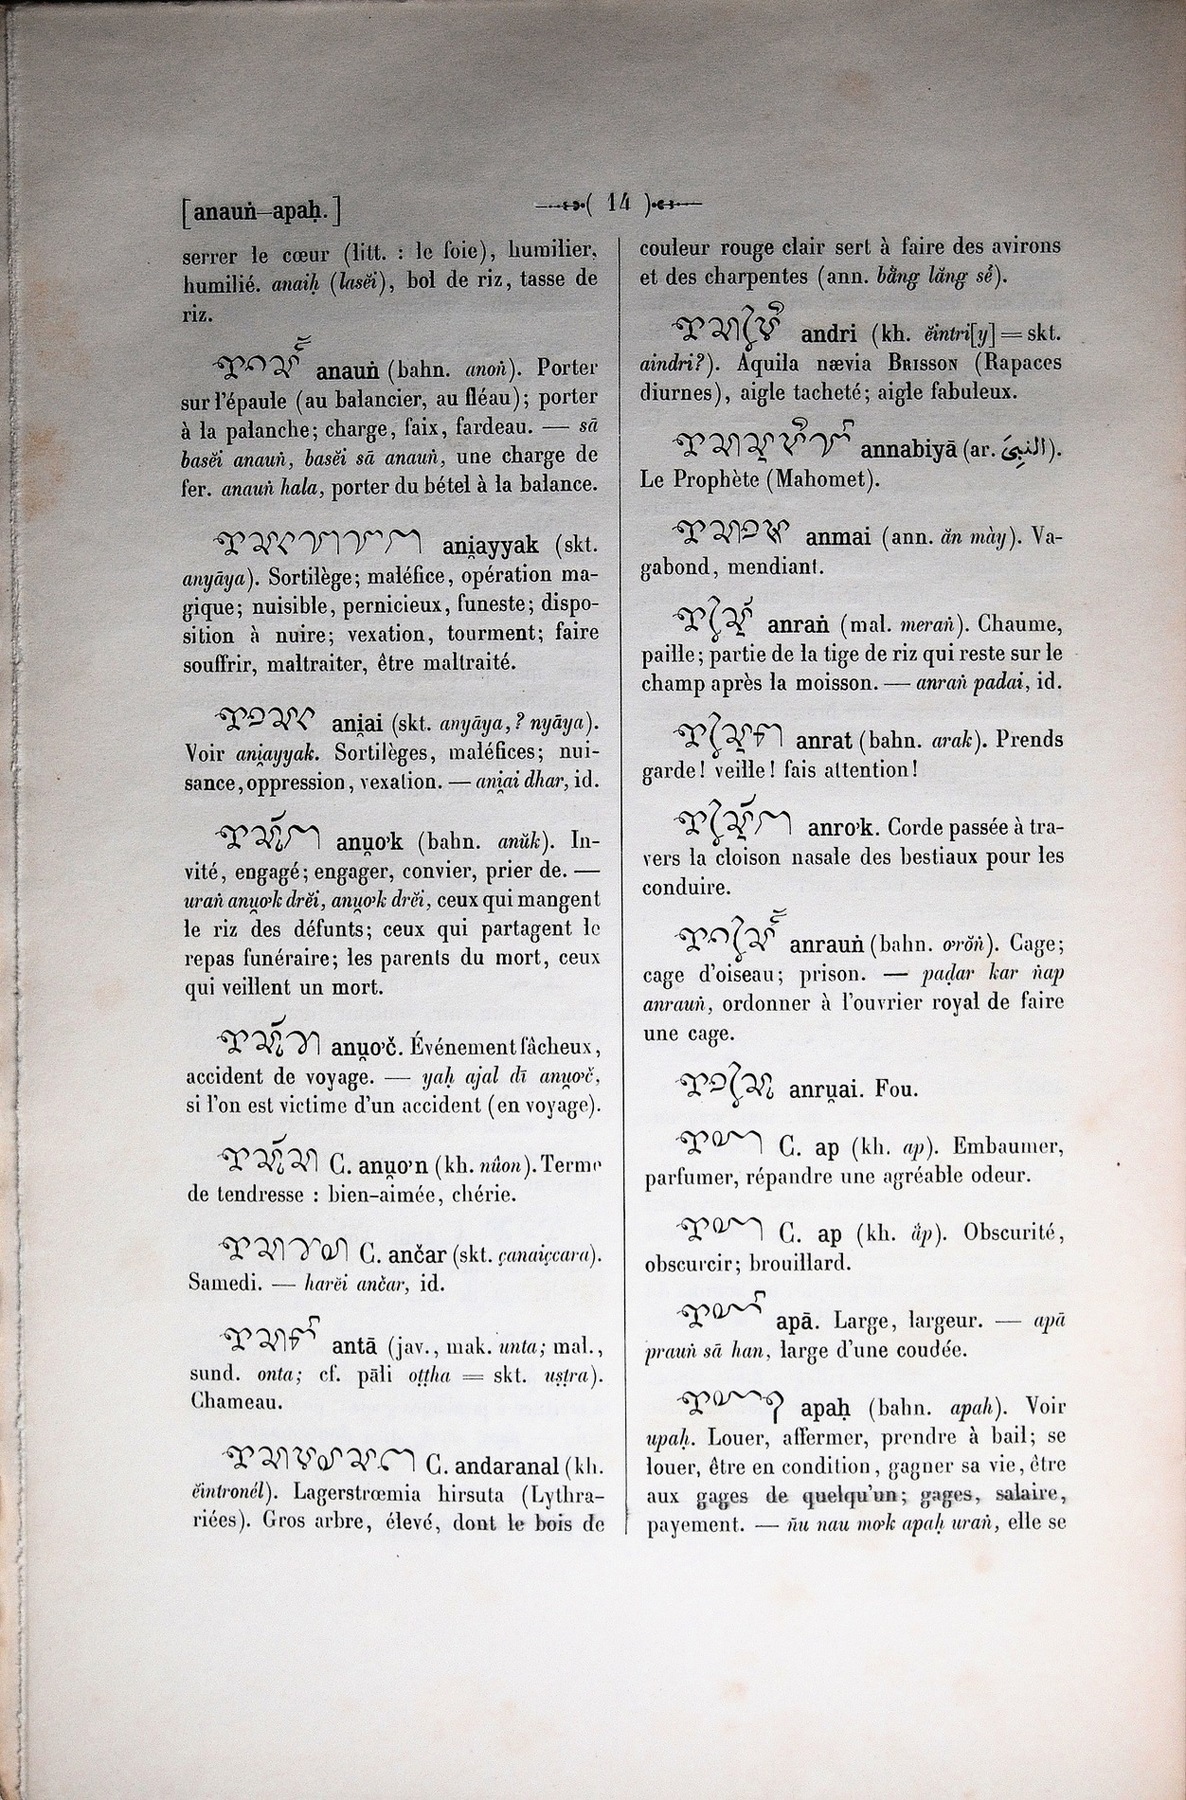 [anauṅ–apaḥ.]
( 14 )
serrer le cœur (litt. : le foie), humilier,
humilié. anaiḥ (lasĕi), bol de riz, tasse de
riz.
anauṅ (bahn. anoṅ). Porter
sur l'épaule (au balancier, au fléau); porter
à la palanche; charge, faix, fardeau. — sā
basĕi anauṅ, basĕi sā anauṅ, une charge de
fer. anauṅ hala, porter du bétel à la balance.
ani̯ayyak (skt.
anyāya). Sortilège; maléfice, opération ma-
gique; nuisible, pernicieux, funeste; dispo-
sition à nuire; vexation, tourment; faire
souffrir, maltraiter, être maltraité.
ani̯ai (skt. anyāya, ? nyāya).
Voir ani̯ayyak. Sortilèges, maléfices; nui-
sance, oppression, vexation. — ani̯ai dhar, id.
anu̯o'k (bahn. anŭk). In-
vité, engagé; engager, convier, prier de. —
uraṅ anu̯o'k drĕi, anu̯o'k drĕi, ceux qui mangent
le riz des défunts; ceux qui partagent le
repas funéraire; les parents du mort, ceux
qui veillent un mort.
anu̯o'č. Événement fâcheux,
accident de voyage. — yaḥ ajal dī anu̯o'č,
si l'on est victime d'un accident (en voyage).
C. anu̯o'n (kh. nûon). Terme
de tendresse : bien-aimée, chérie.
C. ančar (skt. çanaiççara).
Samedi. — harĕi ančar, id.
antā (jav., mak. unta; mal.,
sund. onta; cf. pāli oṭṭha = skt. uṣṭra).
Chameau.
C. andaranal (kh.
ĕintronél). Lagerstrœmia hirsuta (Lythra-
riées). Gros arbre, élevé, dont le bois de
couleur rouge clair sert à faire des avirons
et des charpentes (ann. bằng lăng sẻ).
andri (kh. ĕintri[y] = skt.
aindri?). Aquila nævia Brisson (Rapaces
diurnes), aigle tacheté; aigle fabuleux.
annabiyā (ar. النبيّ).
Le Prophète (Mahomet).
anmai (ann. ăn mày). Va-
gabond, mendiant.
anraṅ (mal. meraṅ). Chaume,
paille; partie de la tige de riz qui reste sur le
champ après la moisson. — anraṅ padai, id.
anrat (bahn. arak). Prends
garde! veille! fais attention!
anro'k. Corde passée à tra-
vers la cloison nasale des bestiaux pour les
conduire.
anrauṅ (bahn. o'rŏṅ). Cage;
cage d'oiseau; prison. — paḍar kar ṅap
anrauṅ, ordonner à l'ouvrier royal de faire
une cage.
anru̯ai. Fou.
C. ap (kh. ap). Embaumer,
parfumer, répandre une agréable odeur.
C. ap (kh. ăp). Obscurité,
obscurcir; brouillard.
apā. Large, largeur. — apā
prauṅ sā han, large d'une coudée.
apaḥ (bahn. apah). Voir
upaḥ. Louer, affermer, prendre à bail; se
louer, être en condition, gagner sa vie, être
aux gages de quelqu'un; gages, salaire,
payement. — ñu nau mo'k apaḥ uraṅ, elle se